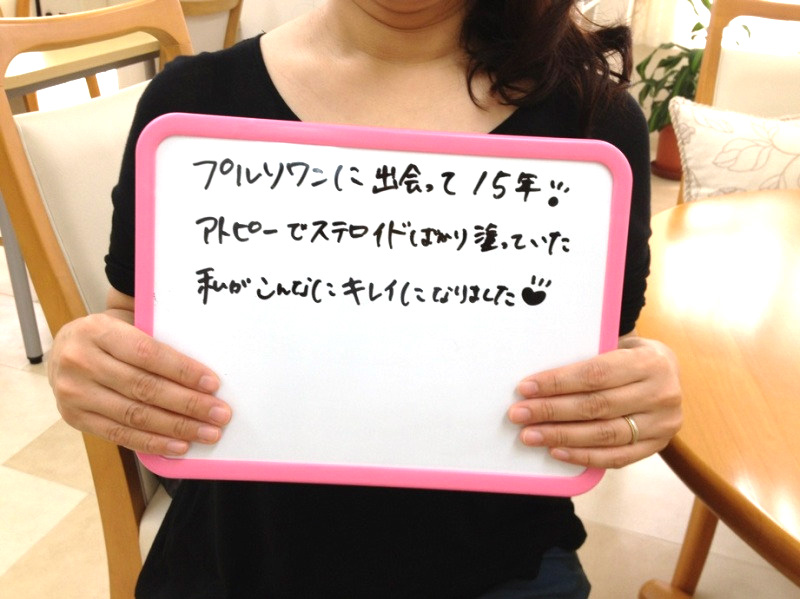 プルソワンに出会って15年!
アトピーでステロイドばかり塗っていた
私がこんなにキレイになりました♥